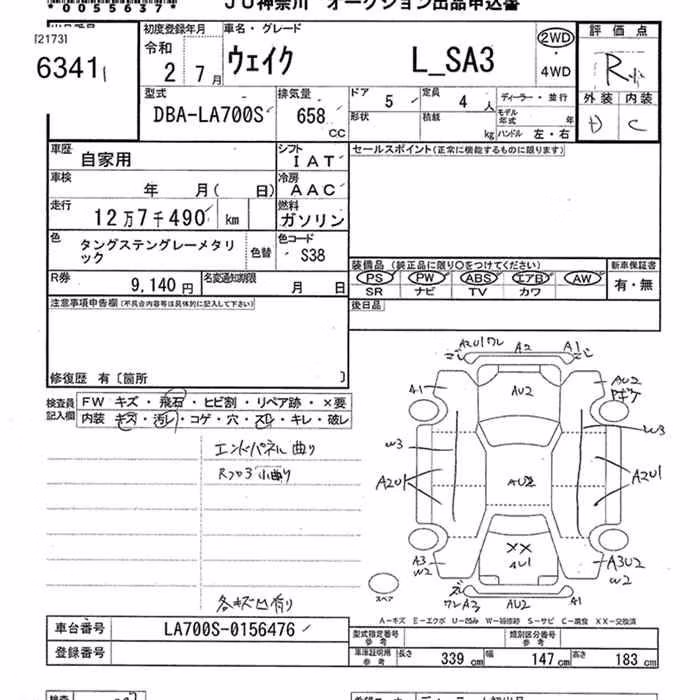 *005637*
JU神奈川 オークション出品申込書
[2173]
6341
初度登録年月
令和
2 年 7 月
車名・グレード
ウェイク L_SA3
2WD
・
4WD
評価点
R
外装 内装
D C
型式
DBA-LA700S
排気量
658 CC
ドア 5
定員 4 人
ディーラー・並行
形状
積載 kg
モデル年式 年
ハンドル 左・右
車歴
自家用
シフト
IAT
セールスポイント(正常に機能するものに限ります)
車検
年 月( 日)
冷房
AAC
走行
12万7千490 km
燃料
ガソリン
色
タングステングレーメタリック
色替
色コード
S38
R券
9,140 円
名変通知期限
月 日
装備品(純正品に限り○をつけてください)
PS PW ABS エアB AW
SR ナビ TV カワ
新車保証書
有・無
後日品
注意事項申告欄(不具合内容等は具体的に記入して下さい)
修復歴 有〔箇所 〕
検査員記入欄
FW キズ・飛石・ヒビ割・リペア跡・×要
内装 キズ・汚レ・コゲ・穴・スレ・キレ・破レ
エンドパネル曲り
Rフロア小曲り
各キズ凹有り
A2U1 ワレ
A2
A1
A1
AU2
AU2
W3
W3
A2U1
A2U1
AU2
XX
AU1
A3
W2
A3U2
W2
ワレA2
AU2
A1
スペア
A-キズ E-エクボ U-凹み W-補修跡 S-サビ C-腐食 XX-交換済
車台番号
LA700S-0156476
登録番号
型式指定番号
参考
類別区分番号
参考
車庫証明用
参考
長さ 339 cm
幅 147 cm
高さ 183 cm